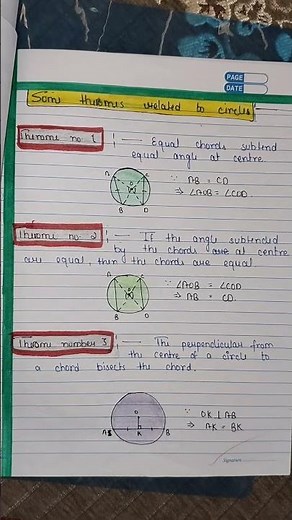 PAGE
DATE
Som theroms related to circles
Therom no. 1 :— Equal chords subtend
equal angle at centre.
A C
O
B D
∵ AB = CD
⇒ ∠AOB = ∠COD.
Therom no. 2 :— If the angle subtended
by the chords are at centre
are equal, then the chords are equal.
A C
O
B D
∵ ∠AOB = ∠COD
⇒ AB = CD.
Therom number 3 :— The perpendicular from
the centre of a circle to
a chord bisects the chord.
O
A K B
∵ OK ⊥ AB
⇒ AK = BK
Signature